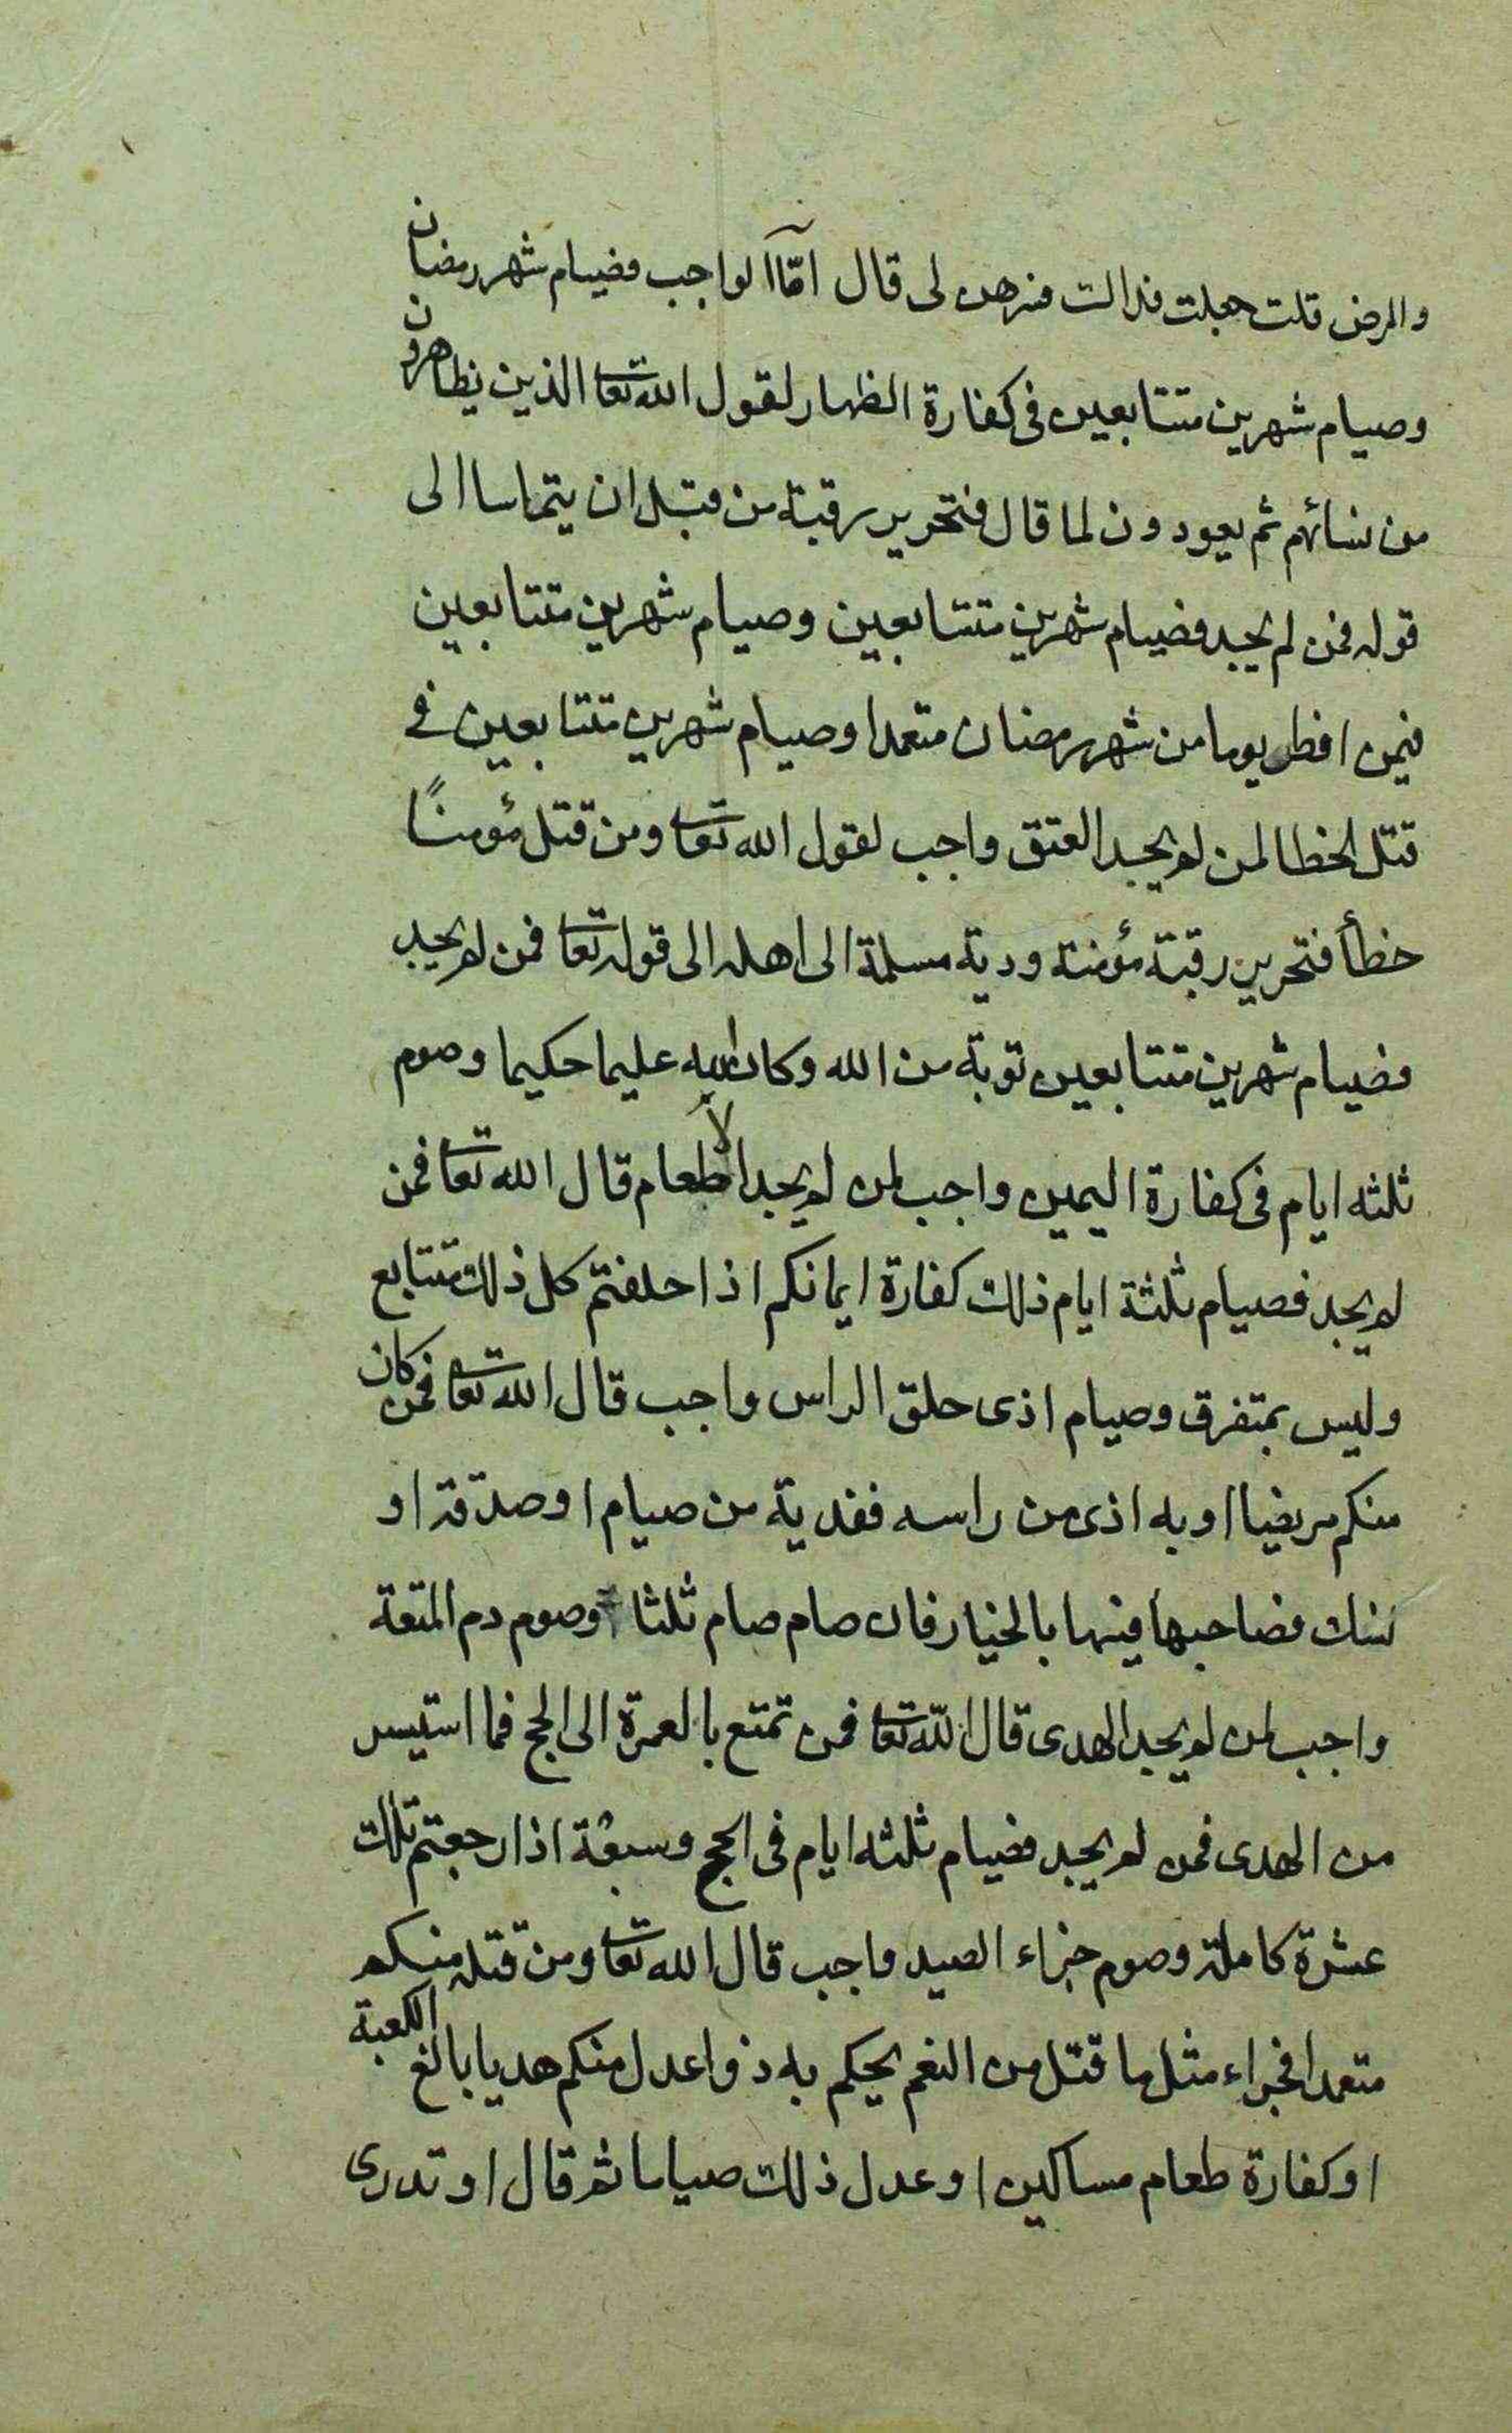 والمرض قلت جعلت فدالت فسرهن لى قال امّا الواجب فصيام شهر رمضان
وصيام شهرين متتابعين فى كفارة الظهار لقول الله تعا الذين يظاهرون
من نسائهم ثم يعودون لما قال فتحرير رقبة من قبل ان يتماسا الى
قوله فمن لم يجد فصيام شهرين متتابعين وصيام شهرين متتابعين
فيمن افطر يوما من شهر رمضان متعمدا وصيام شهرين متتابعين فى
قتل الخطا لمن لم يجد العتق واجب لقول الله تعا ومن قتل مؤمنًا
خطأ فتحرير رقبة مؤمنة ودية مسلمة الى اهله الى قوله تعا فمن لم يجد
فصيام شهرين متتابعين توبة من الله وكان الله عليما حكيما وصوم
ثلثه ايام فى كفارة اليمين واجب لمن لم يجد الاطعام قال الله تعا فمن
لم يجد فصيام ثلثة ايام ذلك كفارة ايمانكم اذا حلفتم كل ذلك متتابع
وليس بمتفرق وصيام اذى حلق الراس واجب قال الله تعا فمن كان
منكم مريضا او به اذى من راسه ففدية من صيام او صدقة او
نسك فصاحبها فيها بالخيار فان صام صام ثلثا وصوم دم المتعة
واجب لمن لم يجد الهدى قال الله تعا فمن تمتع بالعمرة الى الحج فما استيسر
من الهدى فمن لم يجد فصيام ثلثه ايام فى الحج وسبعة اذا رجعتم تلك
عشرة كاملة وصوم جزاء الصيد واجب قال الله تعا ومن قتله منكم
متعمدا فجزاء مثل ما قتل من النعم يحكم به ذوا عدل منكم هديا بالغ الكعبة
او كفارة طعام مساكين او عدل ذلك صياما ثم قال او تدرى